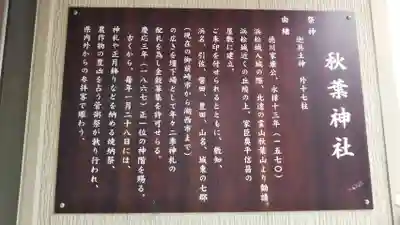 秋葉神社
祭神
迦具土神　外十七柱
由緒
徳川家康公、永禄十三年（一五七〇）
浜松城入城の際、北遠の霊山秋葉山より勧請、
浜松城近くの丘陵の上、家臣奥平信昌の
屋敷に建立。
ご朱印を付せられるとともに、敷知、
浜名、引佐、豊田、山名、城東の七郡
（現在の御前崎市から湖西市まで）
の広きを壇下崎として年々二季神札の
配札を為し金穀募集を許可せらる。
慶応三年（一八六七）正一位の神階を賜る。
古くから、毎年一月二十八日には、
神札や正月飾りなどを納める焼納祭、
農作物の豊凶を占う管粥祭が執り行われ、
県内外からの参拝客で賑わう。